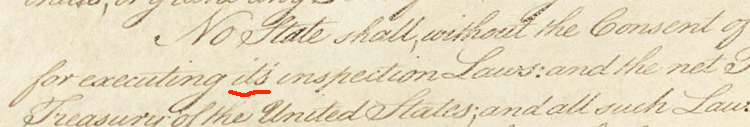 No State shall, without the Consent of
for executing it's inspection Laws: and the net
Treasury of the United States; and all such Laws